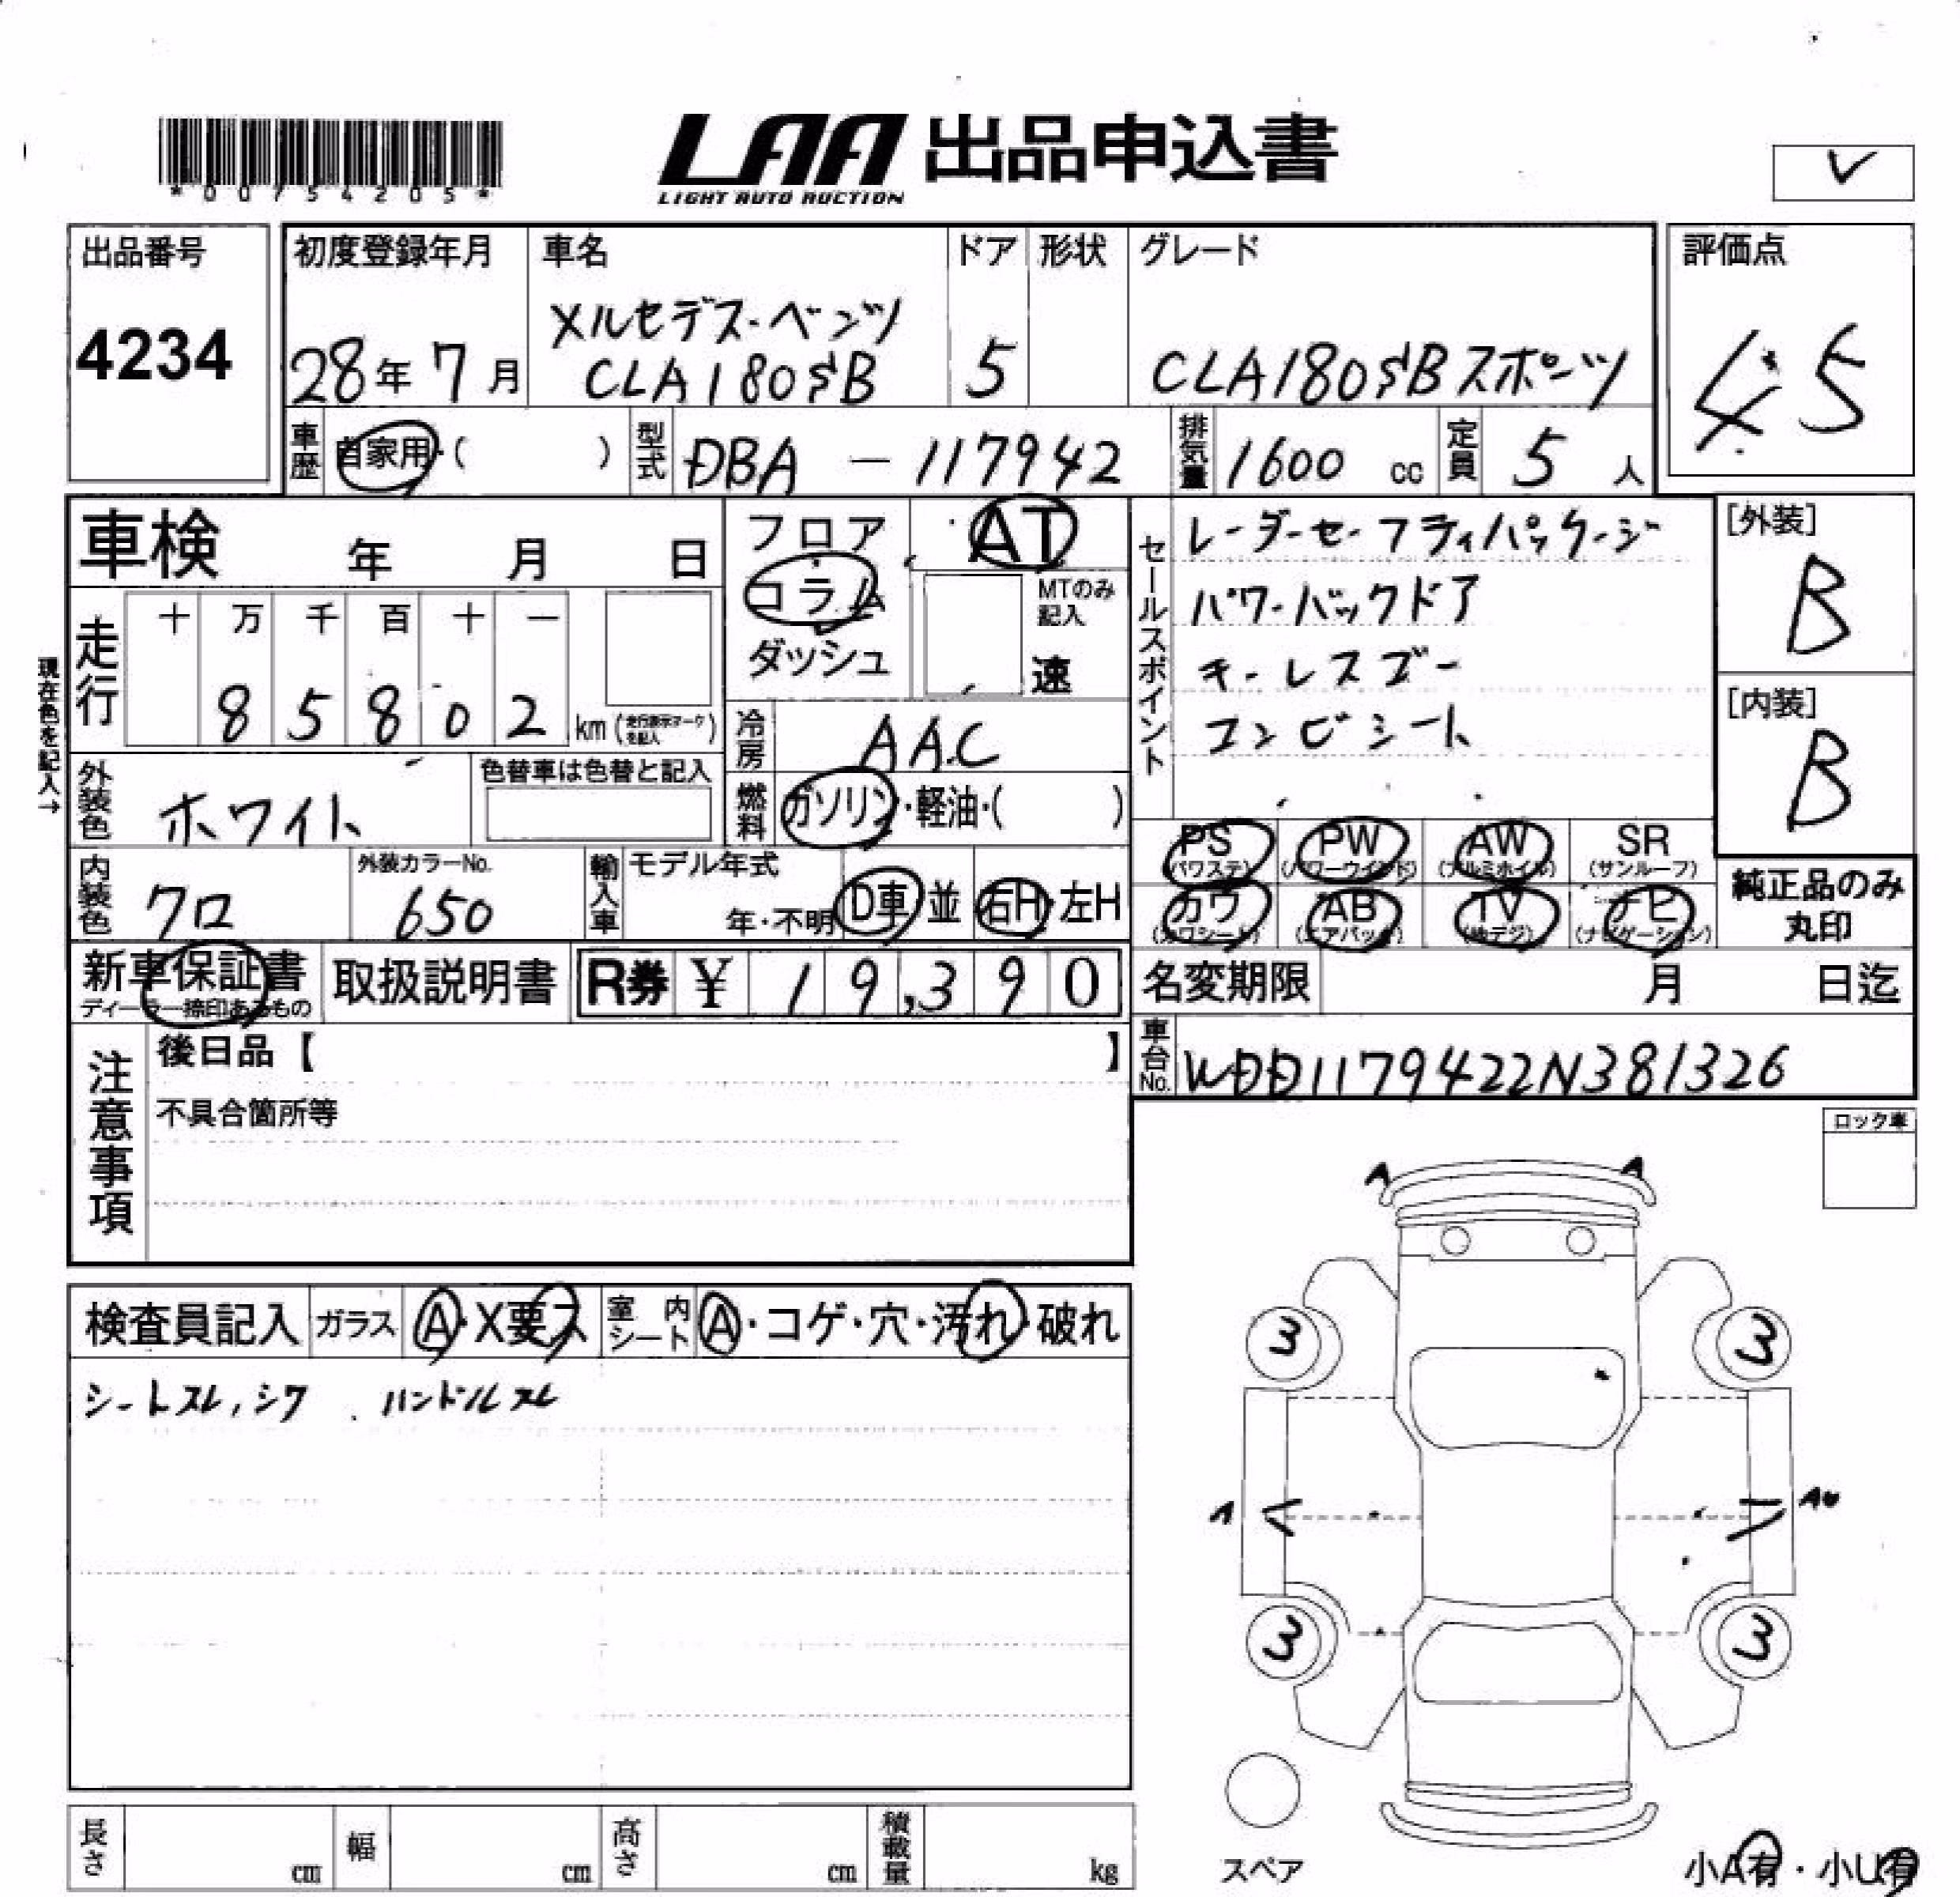 *00754205*
LAA 出品申込書
LIGHT AUTO AUCTION
レ
出品番号
4234
初度登録年月
28年 7月
車名
メルセデス・ベンツ
CLA180SB
ドア
5
形状
グレード
CLA180SBスポーツ
評価点
4.5
車歴 自家用・( )
型式 DBA-117942
排気量 1600 cc
定員 5 人
車検 年 月 日
フロア
コラム
ダッシュ
AT
MTのみ記入
速
セールスポイント
レーダーセーフティパッケージ
パワーバックドア
キーレスゴー
コンビシート
[外装]
B
[内装]
B
現在色を記入→
走行
十 万 千 百 十 一
8 5 8 0 2 km (走行表示マークを記入)
冷房 AAC
燃料 ガソリン・軽油・( )
外装色 ホワイト
色替車は色替と記入
内装色 クロ
外装カラーNo.
650
輸入車
モデル年式
年・不明
D車 並
右H・左H
PS (パワステ)
PW (パワーウインド)
AW (アルミホイル)
SR (サンルーフ)
カワ (カワシート)
AB (エアバック)
TV (地デジ)
ナビ (ナビゲーション)
純正品のみ
丸印
新車保証書
ディーラー捺印あるもの
取扱説明書
R券 ¥ 19,390
名変期限 月 日迄
車台No. WDD1179422N381326
注意事項
後日品【 】
不具合箇所等
ロック車
検査員記入
ガラス A・X要ス
室内シート A・コゲ・穴・汚れ・破れ
シートスレ,シワ ハンドルスレ
A A
3 3
A AU
3 3
スペア
長さ cm
幅 cm
高さ cm
積載量 kg
小A有・小U有